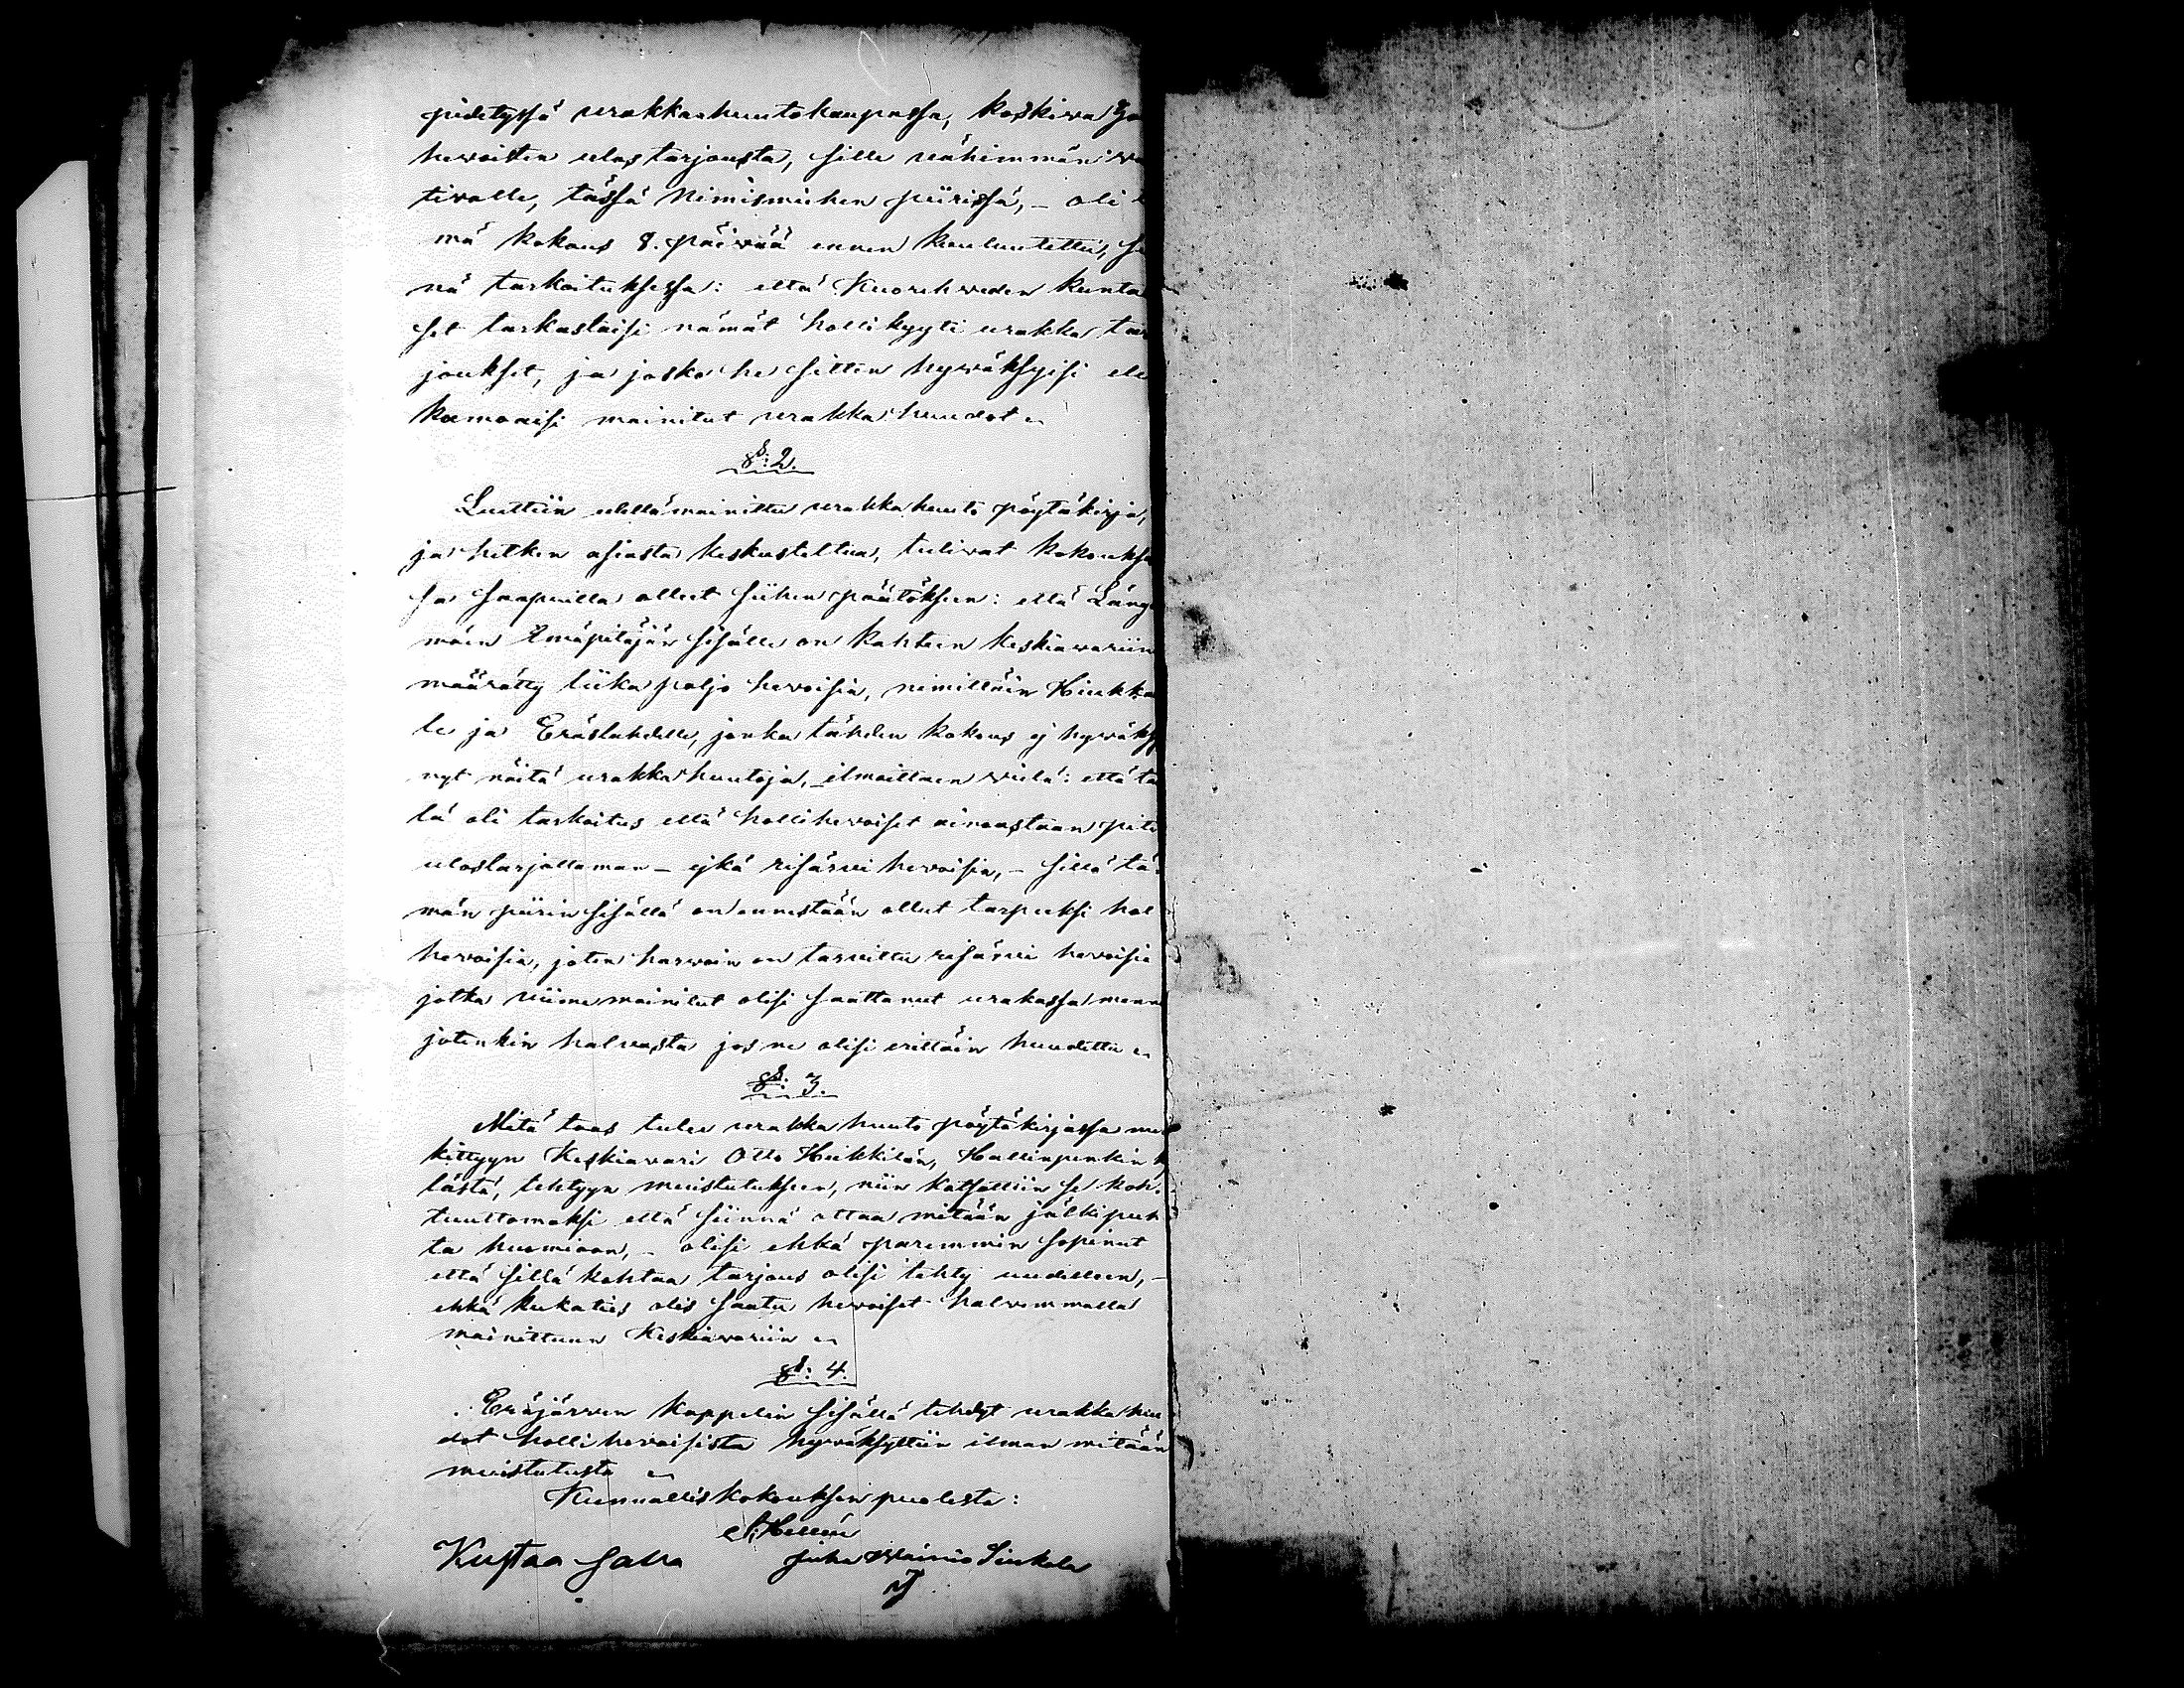 pidetyssä urakkanhuutokaupassa, koskiwa
hewoisten ulos tarjousta, sille vähimmän
tivalle, tässä Nimismiehen piirissä, – oli
mä kokous 8. päiwää ennen kuuluutettu,
nä tarkoituksessa: että Kuorehweden Kunta
set tarkastaisi nämät hollikyyti urakka tar
joukset, ja josko he sitten hywäksyisi eli
kumoaisi mainitut urakka huudot
§: 2.
Luettiin ulellämainittu urakkahuuto pöytäkirja,
ja hetken asiasta keskusteltua, tulivat kokoukse
sa saapuilla olleet siihen päätökseen: että Läng
mäen Emäpitäjän sisälle on kahteen Keskiawariin
määrätty liika paljo hevoisia, nimittäin Hiukka
le ja Eräslahdelle, jonka tähden kokous ej hywäksy
nyt näitä urakkahuutoja, – ilmoittaen wielä: että tä
lä oli tarkoitus että hollihevoiset ainoastaan piti
ulostarjottaman – ejkä risärvi hevoisia, – sillä tä
män piirin sisällä on ennestään ollut tarpeeksi hol
hevoisia, joten harwoin on tarvittu resärvi hevoisia
jotka viime mainitut olisi saattanut urakassa menn
jotenkin halvasta jos ne olisi erittäin huudettu
§: 3.
Mitä taas tulee urakka huuto pöytäkirjassa mer
kittyyn Keskiawari Otto Heikkilän, Hallinpenkin
lästä, tehtyyn muistutukseen, niin katsottiin se koh
tuuttomaksi että siinnä ottaa mitään jälkipuh
ta huomioon, – olisi ehkä paremmin sopinut
että sillä kohtaa tarjous olisi tehty uudelleen, –
ehkä kukaties olis saatu hevoiset halvemmalla
mainittuun Keskiawariin
§: 4.
Eräjärwen Kappelin sisällä tehdyt urakka huu
dot hollihevoisista hywäksyttiin ilman mitään
muistutusta
Kunnalliskokouksen puolesta:
Hellén
Kustaa Salla Juha Wainio Sinkala